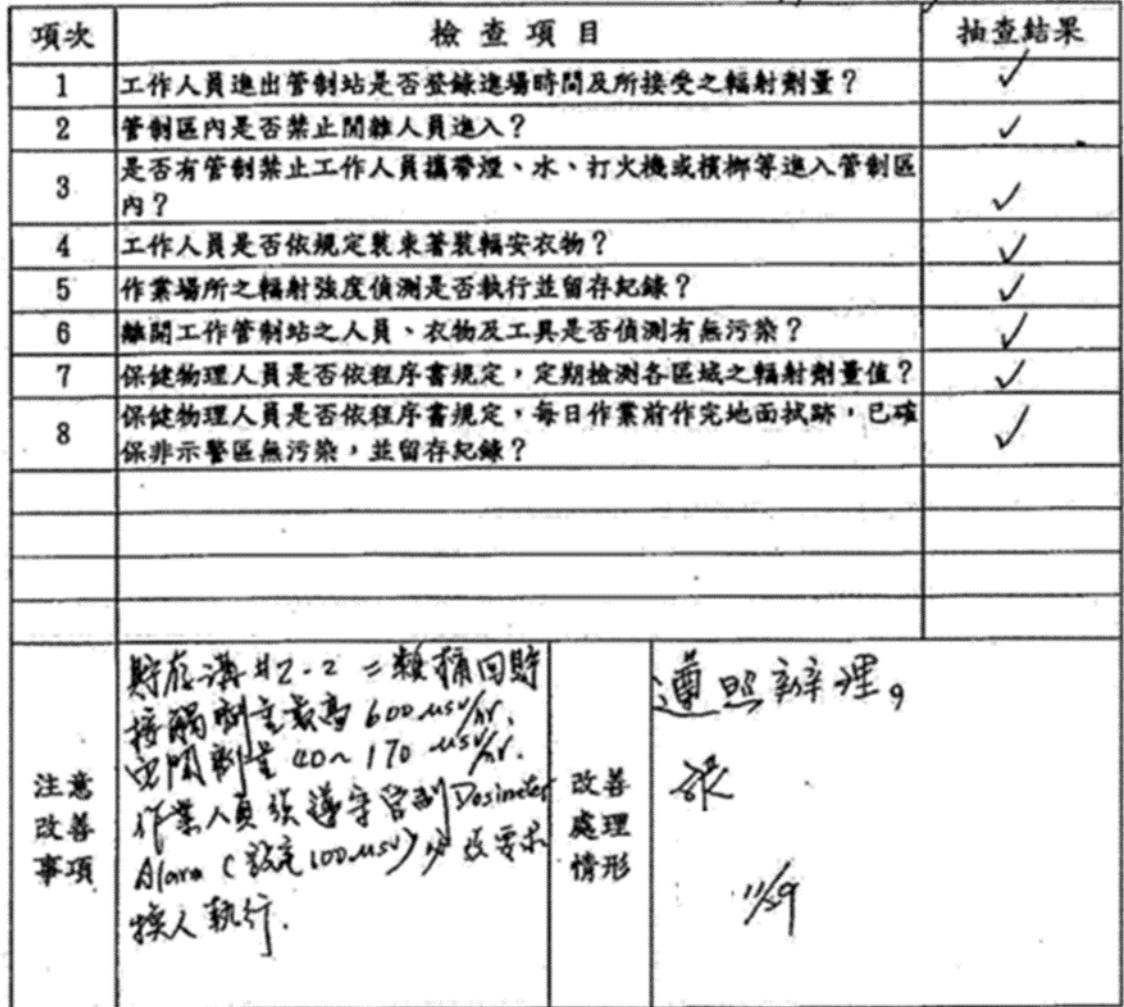 項次 檢查項目 抽查結果
1 工作人員進出管制站是否登錄進場時間及所接受之輻射劑量？ ✓
2 管制區內是否禁止閒雜人員進入？ ✓
3 是否有管制禁止工作人員攜帶煙、水、打火機或檳榔等進入管制區
內？ ✓
4 工作人員是否依規定裝束著裝輻安衣物？ ✓
5 作業場所之輻射強度偵測是否執行並留存紀錄？ ✓
6 離開工作管制站之人員、衣物及工具是否偵測有無污染？ ✓
7 保健物理人員是否依程序書規定，定期檢測各區域之輻射劑量值？ ✓
8 保健物理人員是否依程序書規定，每日作業前作完地面拭跡，已確
保非示警區無污染，並留存紀錄？ ✓
注意
改善
事項
貯存溝#2-2 二類桶回貯
接觸劑量最高 600 usv/hr.
空間劑量 40~170 usv/hr.
作業人員須遵守管制 Dosimeter
Alarm (設定100usv) 要求
換人執行.
改善
處理
情形
遵照辦理。
張
11/29